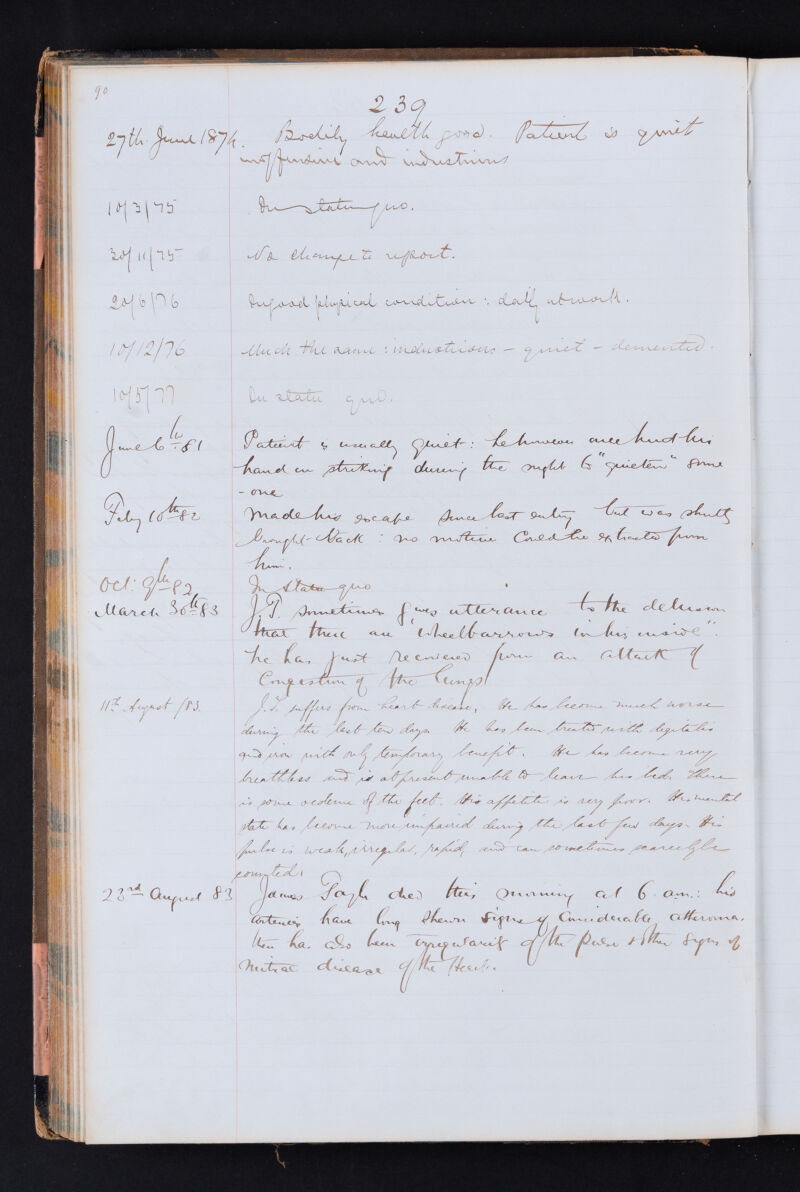 90
239
27th. June 1874. Bodily health good. Patient is quiet
inoffensive and industrious
10/3/75 In statu quo.
30/11/75 No change to report.
20/6/76 In good physical condition: daily at work.
10/12/76 Much the same: industrious - quiet - demented.
10/5/77 In statu quo.
June 6th 81 Patient is usually quiet: he however once hurt his
hand in striking during the night to "quieten" some
-one
Feby 10th 82 Made his escape since last entry but was shortly
brought back: no motive could be extracted from
him.
Oct: 9th 82 In statu quo
March 30th 83 J.T. sometimes gives utterance to the delusion
that there are "wheelbarrows in his inside".
he has just recovered from an attack of
Congestion of the lungs
11th August /83. J.T. suffers from heart disease. He has become much worse
during the last ten days. He has been treated with digitalis
and iron with only temporary benefit. He has become very
breathless and is at present unable to leave his bed. There
is some oedema of the feet. His appetite is very poor. His mental
state has become more impaired during the last few days. His
pulse is weak, irregular, rapid, and can sometimes scarcely be
counted.
23rd August 83 James died this morning at 6. a.m.: his
arteries have long shewn signs of considerable atheroma.
there has also been irregularity of the pulse & other signs of
mitral disease of the Heart.